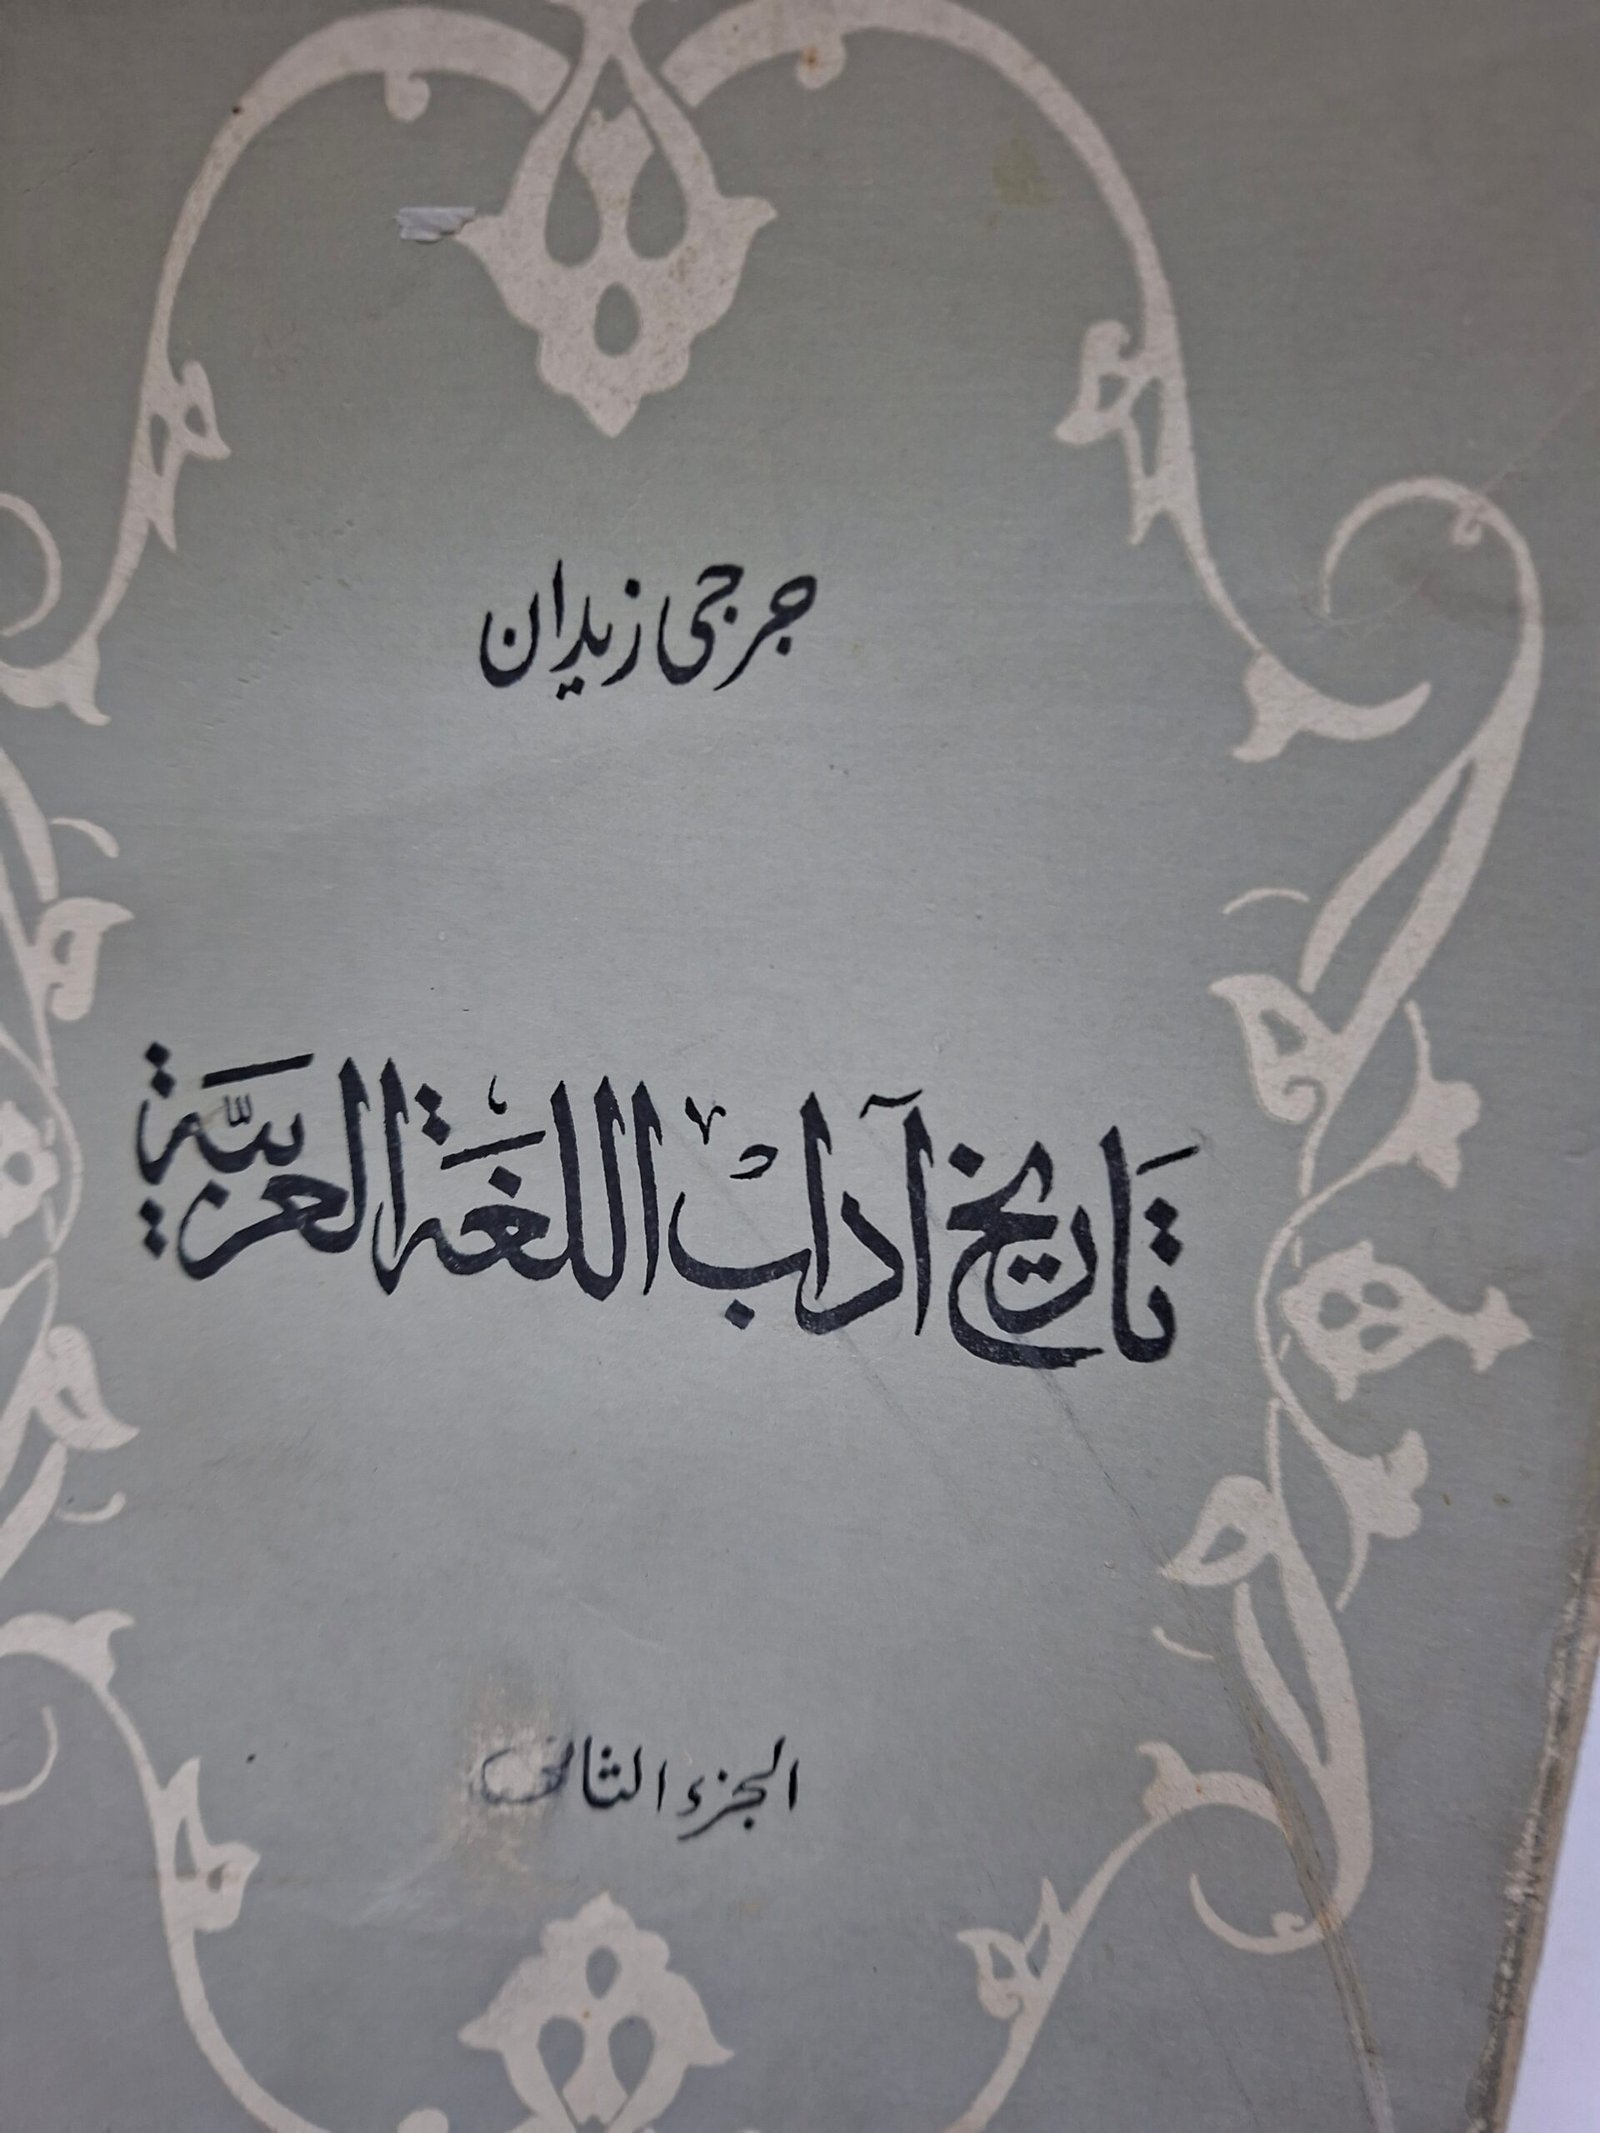 جرجى زيدان
تاريخ آداب اللغة العربية
الجزء الثانى